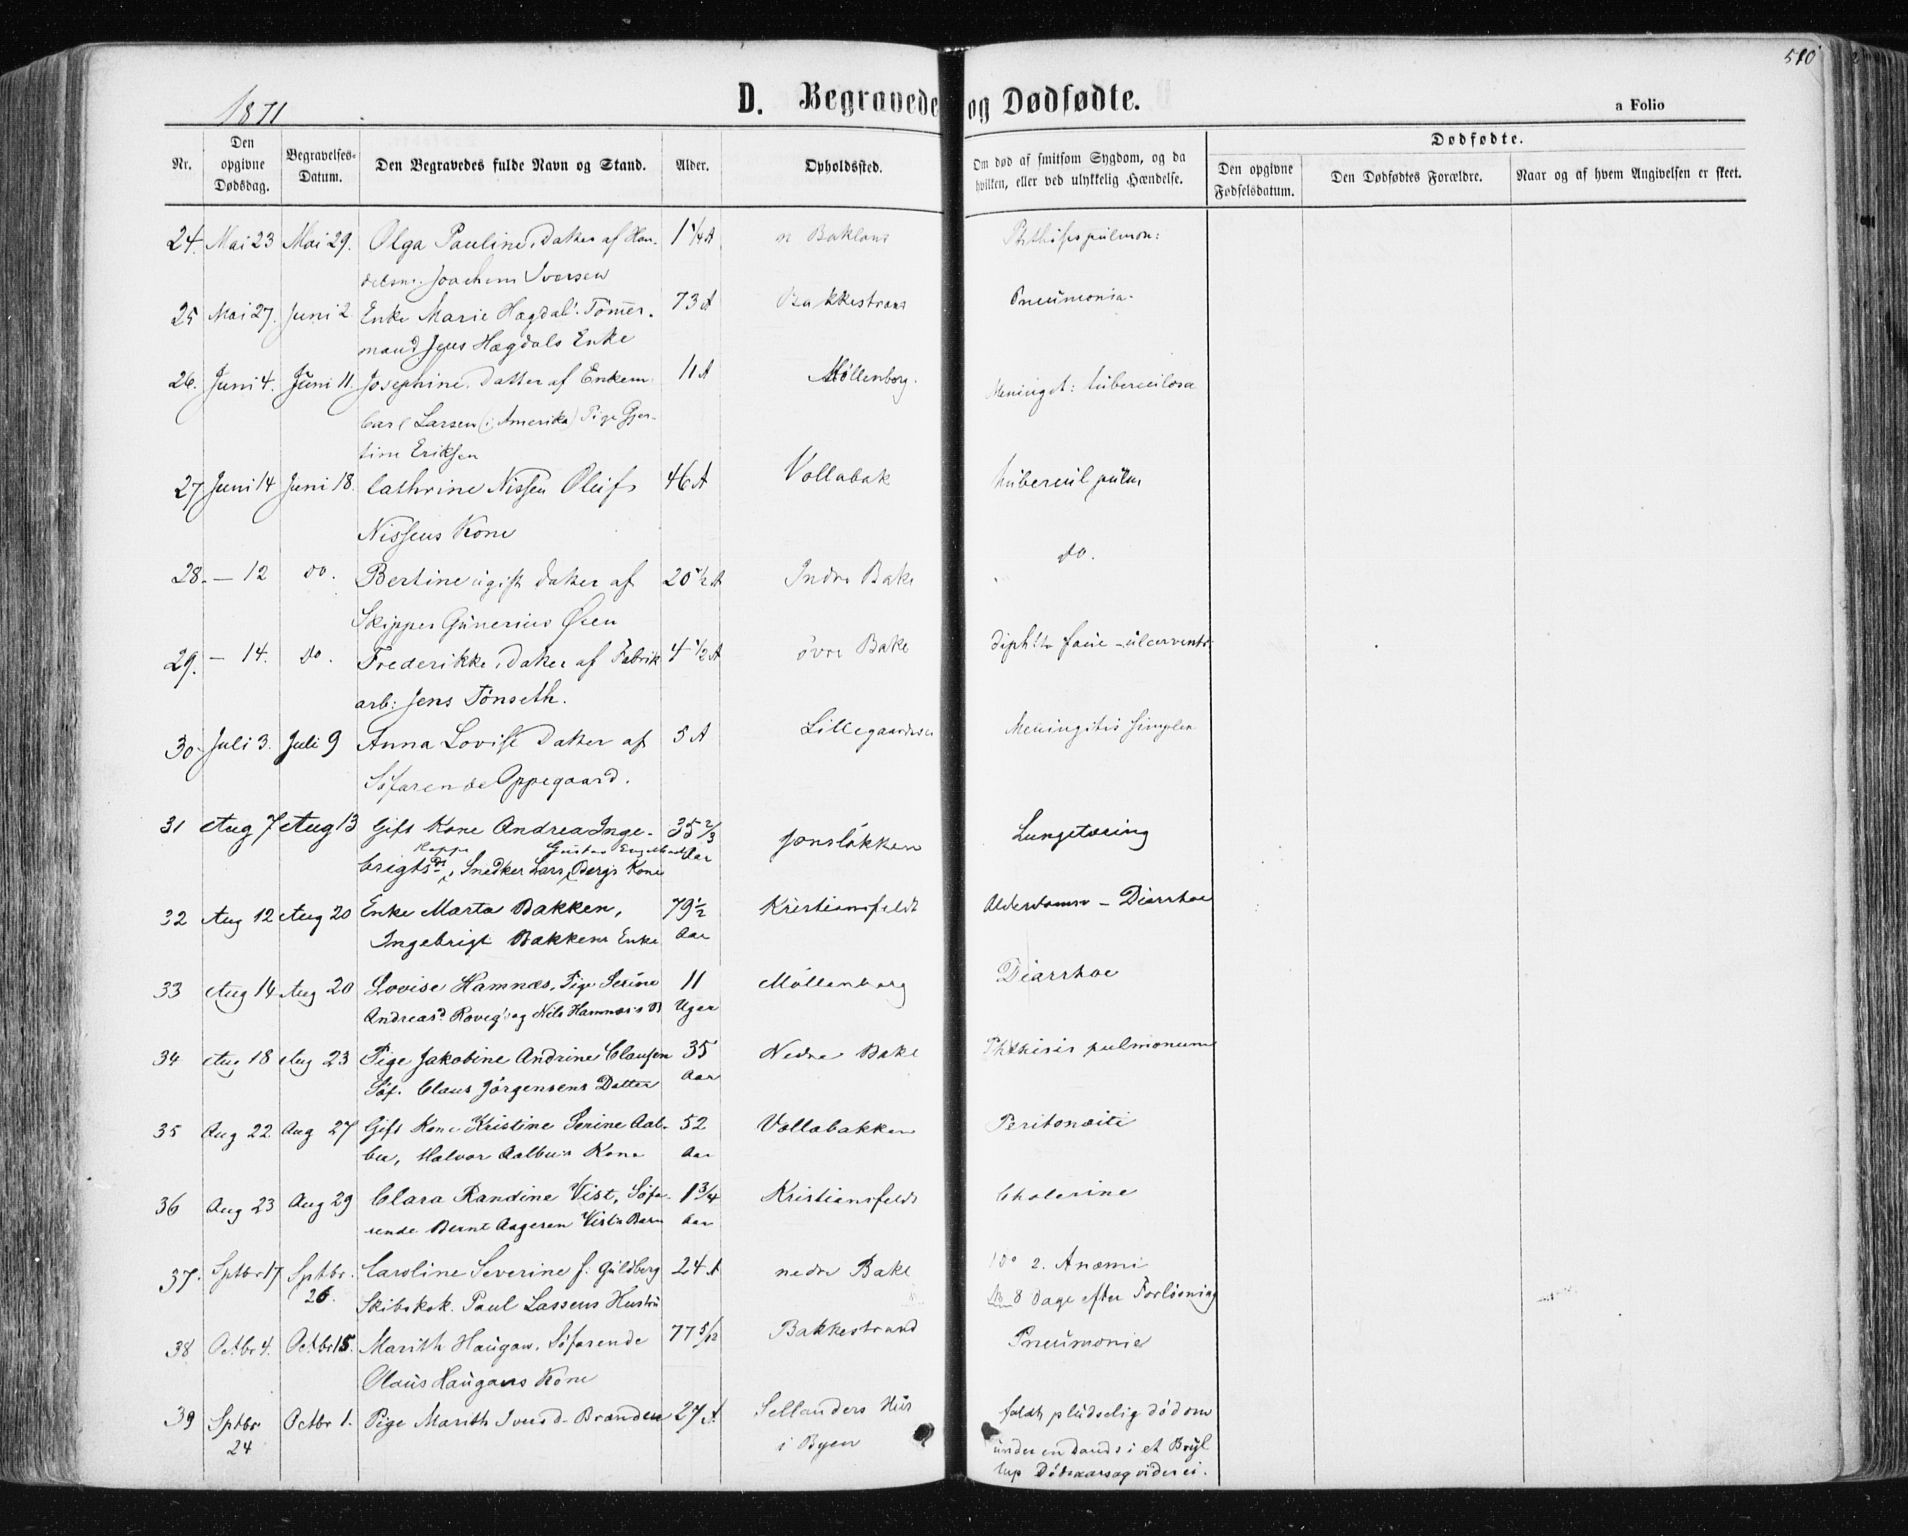 510
1871
D. Begravede og Dødfødte.
a Folio
Nr.
Den opgivne Dødsdag.
Begravelses-Datum.
Den Begravedes fulde Navn og Stand.
Alder.
Opholdssted.
Om død af smitsom Sygdom, og da hvilken, eller ved ulykkelig Hændelse.
Dødfødte.
Den opgivne Fødselsdatum.
Den Dødfødtes Forældre.
Naar og af hvem Angivelsen er skeet.
24. Mai 23 Mai 29. Olga Pauline, Datter af Han- 1 1/4 A n Baklans Phthisis pulmon:
delsm. Joachim Iversen
25 Mai 27. Juni 2 Enke Marie Hægdal. Tömer- 73 A Bakkestrans Pneumonia.
mand Jens Hægdals Enke
26. Juni 4. Juni 11. Josephine. Datter af Enkem. 11 A Möllenborg. Meninget: tuberculosa
Carl Larsen (i Amerika) Pige Gjer-
tine Eriksen
27 Juni 14 Juni 18. Cathrine Nissen Oleif 46 A Vollabak tubercul pulm
Nissens Kone
28. — 12 do. Bertine ugift Datter af 20 1/2 A Indre Bake do.
Skipper Gunerius Öien
29. — 14. do. Frederikke, Datter af Fabrik 4 1/2 A övre Bake
arb: Jens Tönseth.
30. Juli 3. Juli 9 Anna Lovise Datter af 5 A Lillegaardsv Meningitis simplex
Söfarende Oppegaard.
31 Aug 7 Aug 13 Gift Kone Andrea Inge- 35 2/3 Jonslökken Lungetæring
Hoppe Gustav Engelbert
brigtsd, Snedker Lars Bergs Kone Aar
32 Aug 12 Aug 20 Enke Marta Bakken, 79 1/2 Kristiansfeldt Alderdomsv – Diarrhoe
Ingebrigt Bakkens Enke Aar
33 Aug 14 Aug 20 Lovise Hamnæs, Pige Serine 11 Möllenborg Diarrhoe
Andreasd. Roveg's og Nils Hamnæs's B Uger
34 Aug 18 Aug 23 Pige Jakobine Andrine Clausen 35 Nedre Bake Phthisis pulmonum
Söf. Claus Jörgensens Datter Aar
35 Aug 22 Aug 27 Gift Kone Kristine Serine Aal- 52 Vollabakken Peritonæiti
bu, Halvor Aalbu's Kone Aar
36 Aug 23 Aug 29 Clara Randine Vist, Söfa- 1 3/4 Kristiansfeldt Cholerine
rende Bernt Aagesen Vists Barn Aar
37. Sptbr 17 Sptbr. 26. Caroline Severine f. Guldberg 24 A nedre Bake 2. Anæmi
Skibskok. Paul Lassens Hustru 8 Dage efter Forlösning
38 Octbr 4. Octbr 15. Marith Haugan, Söfarende 77 5/12 Bakkestrand Pneumonie
Olaus Haugans Kone
39 Sptbr 24 Octbr 1. Pige Marith Iversd. Brænden 27 A. Sellanders Hus faldt pludselig död om
i Byen under en Dands i et Bryl
lup Dödsaarsag vides ei.